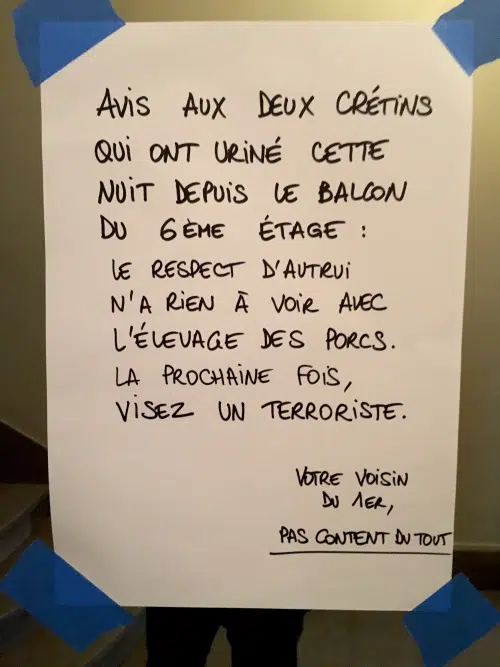 AVIS AUX DEUX CRÉTINS
QUI ONT URINÉ CETTE
NUIT DEPUIS LE BALCON
DU 6ÈME ÉTAGE :
LE RESPECT D'AUTRUI
N'A RIEN À VOIR AVEC
L'ÉLEVAGE DES PORCS.
LA PROCHAINE FOIS,
VISEZ UN TERRORISTE.
VOTRE VOISIN
DU 1ER,
PAS CONTENT DU TOUT